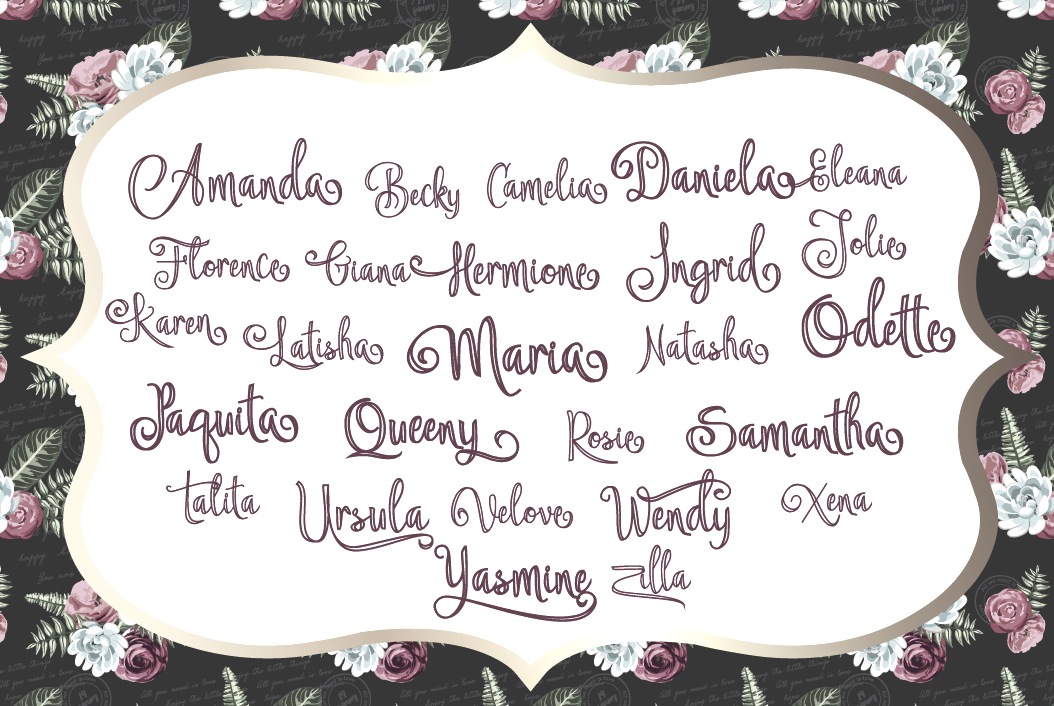 Amanda Becky Camelia Daniela Eleana
Florence Giana Hermione Ingrid Jolie
Karen Latisha Maria Natasha Odette
Paquita Queeny Rosie Samantha
Talita Ursula Velove Wendy Xena
Yasmine Zilla